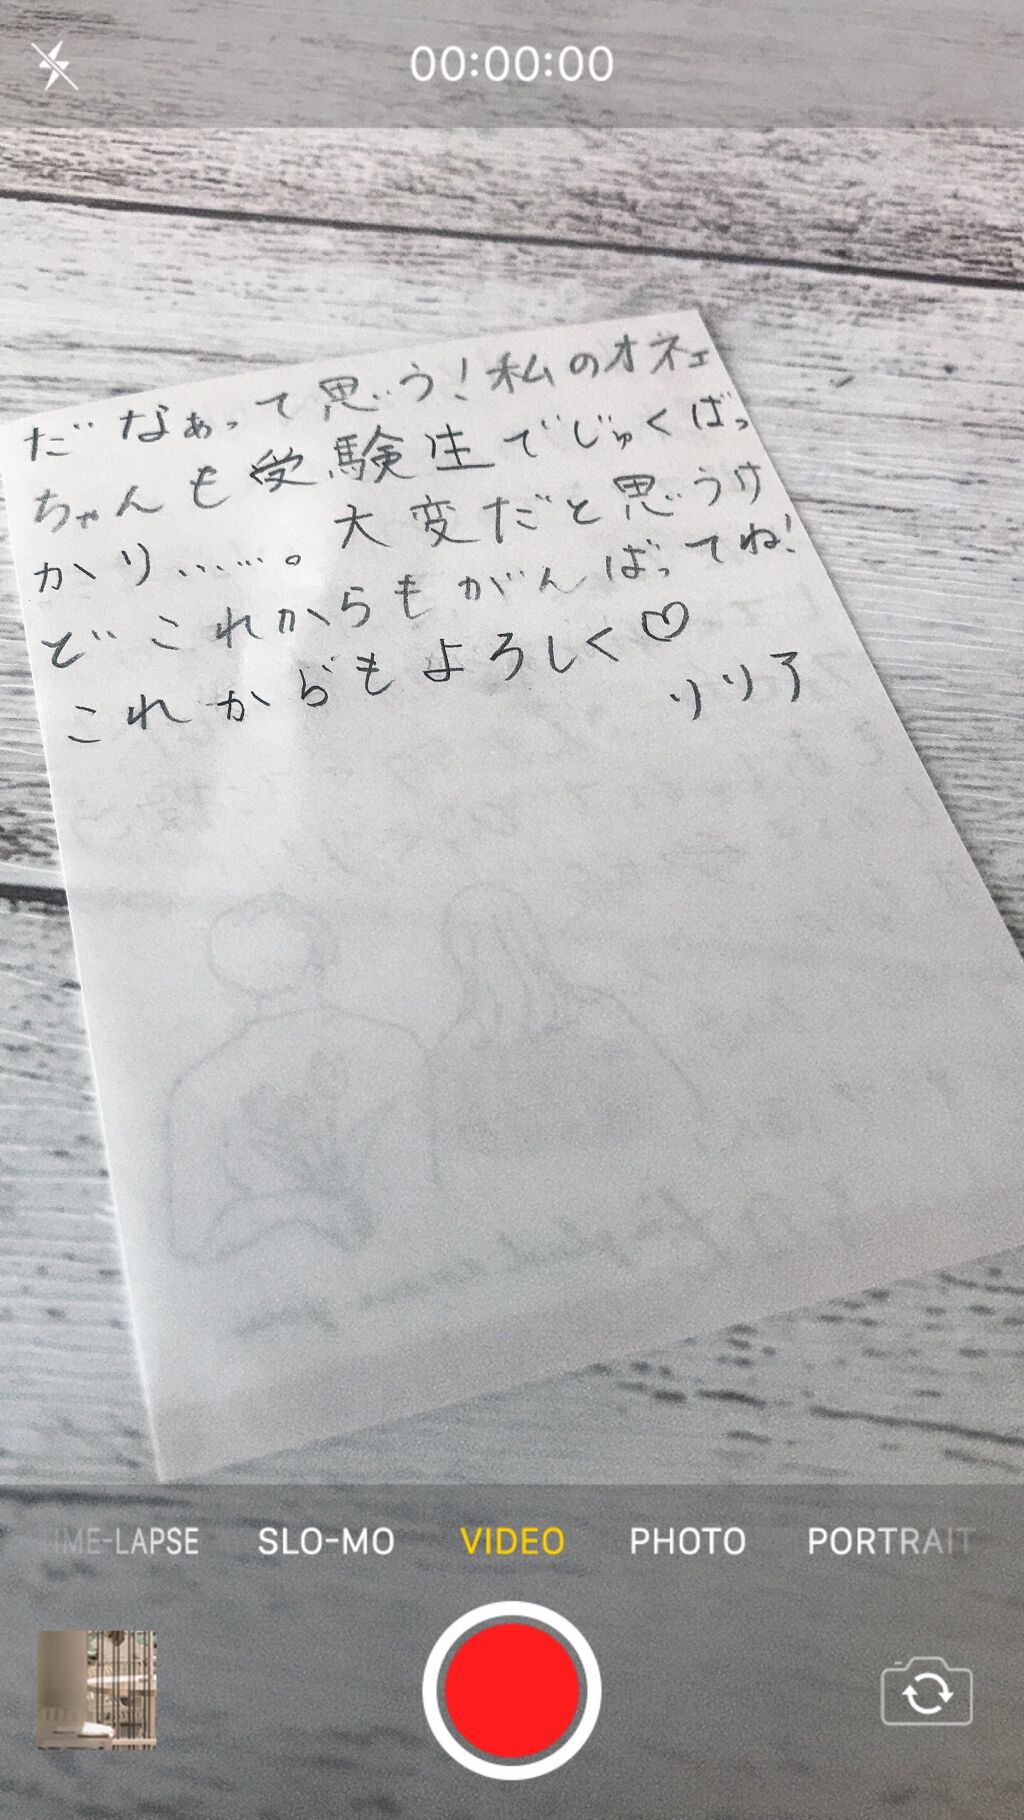 00:00:00
だなぁって思う!私のオネェ
ちゃんも受験生でじゅくばっ
かり……。大変だと思うけ
どこれからもがんばってね!
これからもよろしく♡
リリア
IME-LAPSE
SLO-MO
VIDEO
PHOTO
PORTRAIT